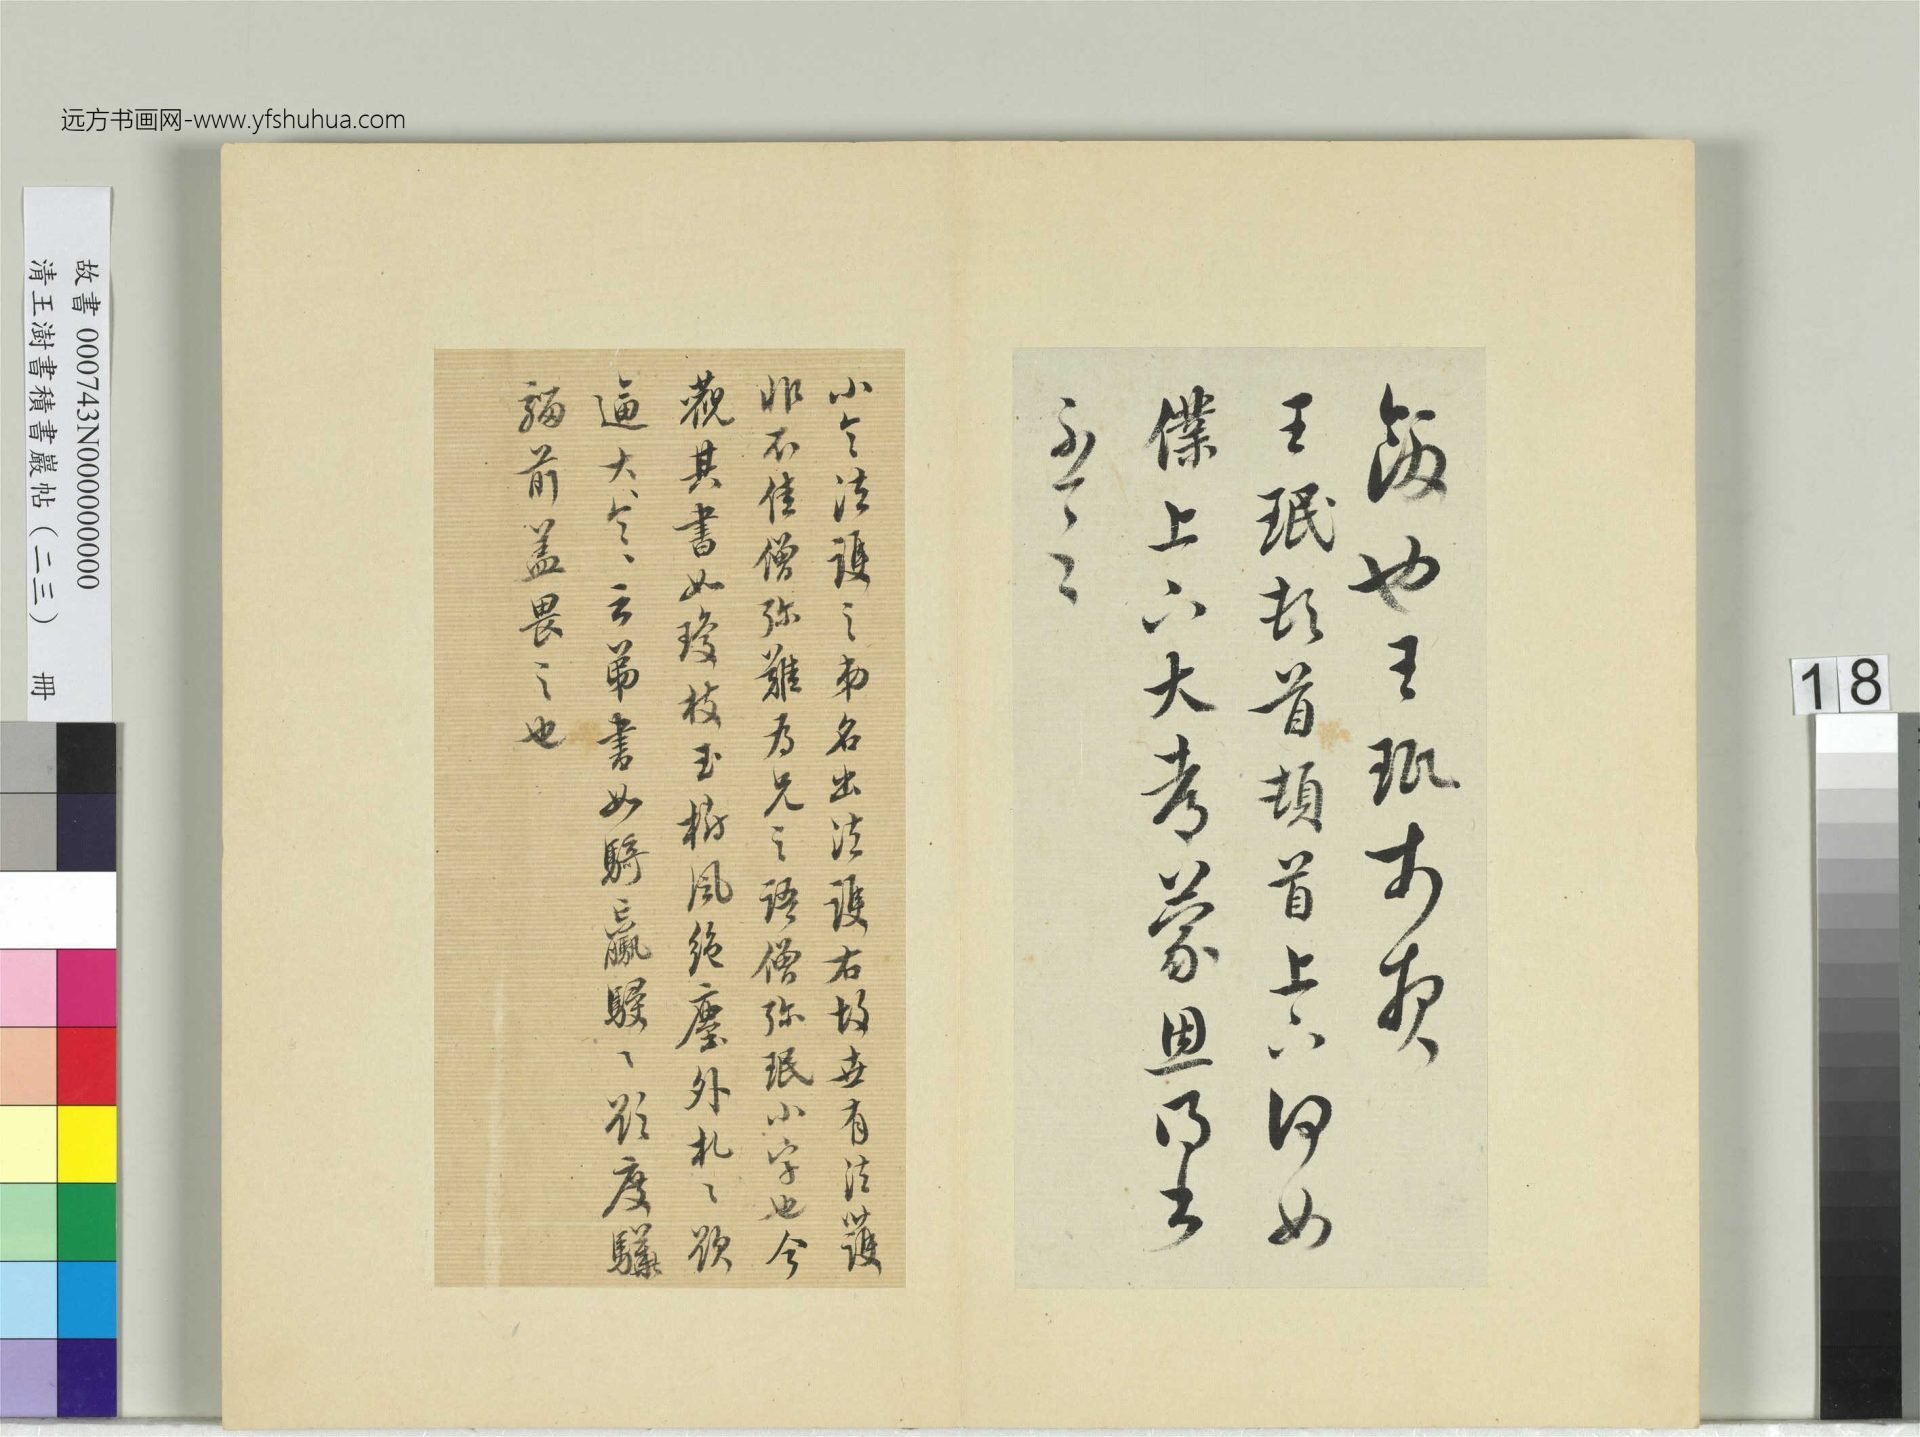 远方书画网-www.yfshuhua.com
故書 000743N000000000
清王澍書積書巖帖(二三) 冊
18
也王珉
王珉頓首頓首上下何如
僕上下大考蒙恩
小令法護之弟名出法護右故世有法護
非不佳僧弥難為兄之語僧弥珉小字也今
觀其書如瓊枝玉樹風絶塵外札〻欲
逼大令〻云弟書如騎贏駸〻欲度驊
騮前蓋畏之也